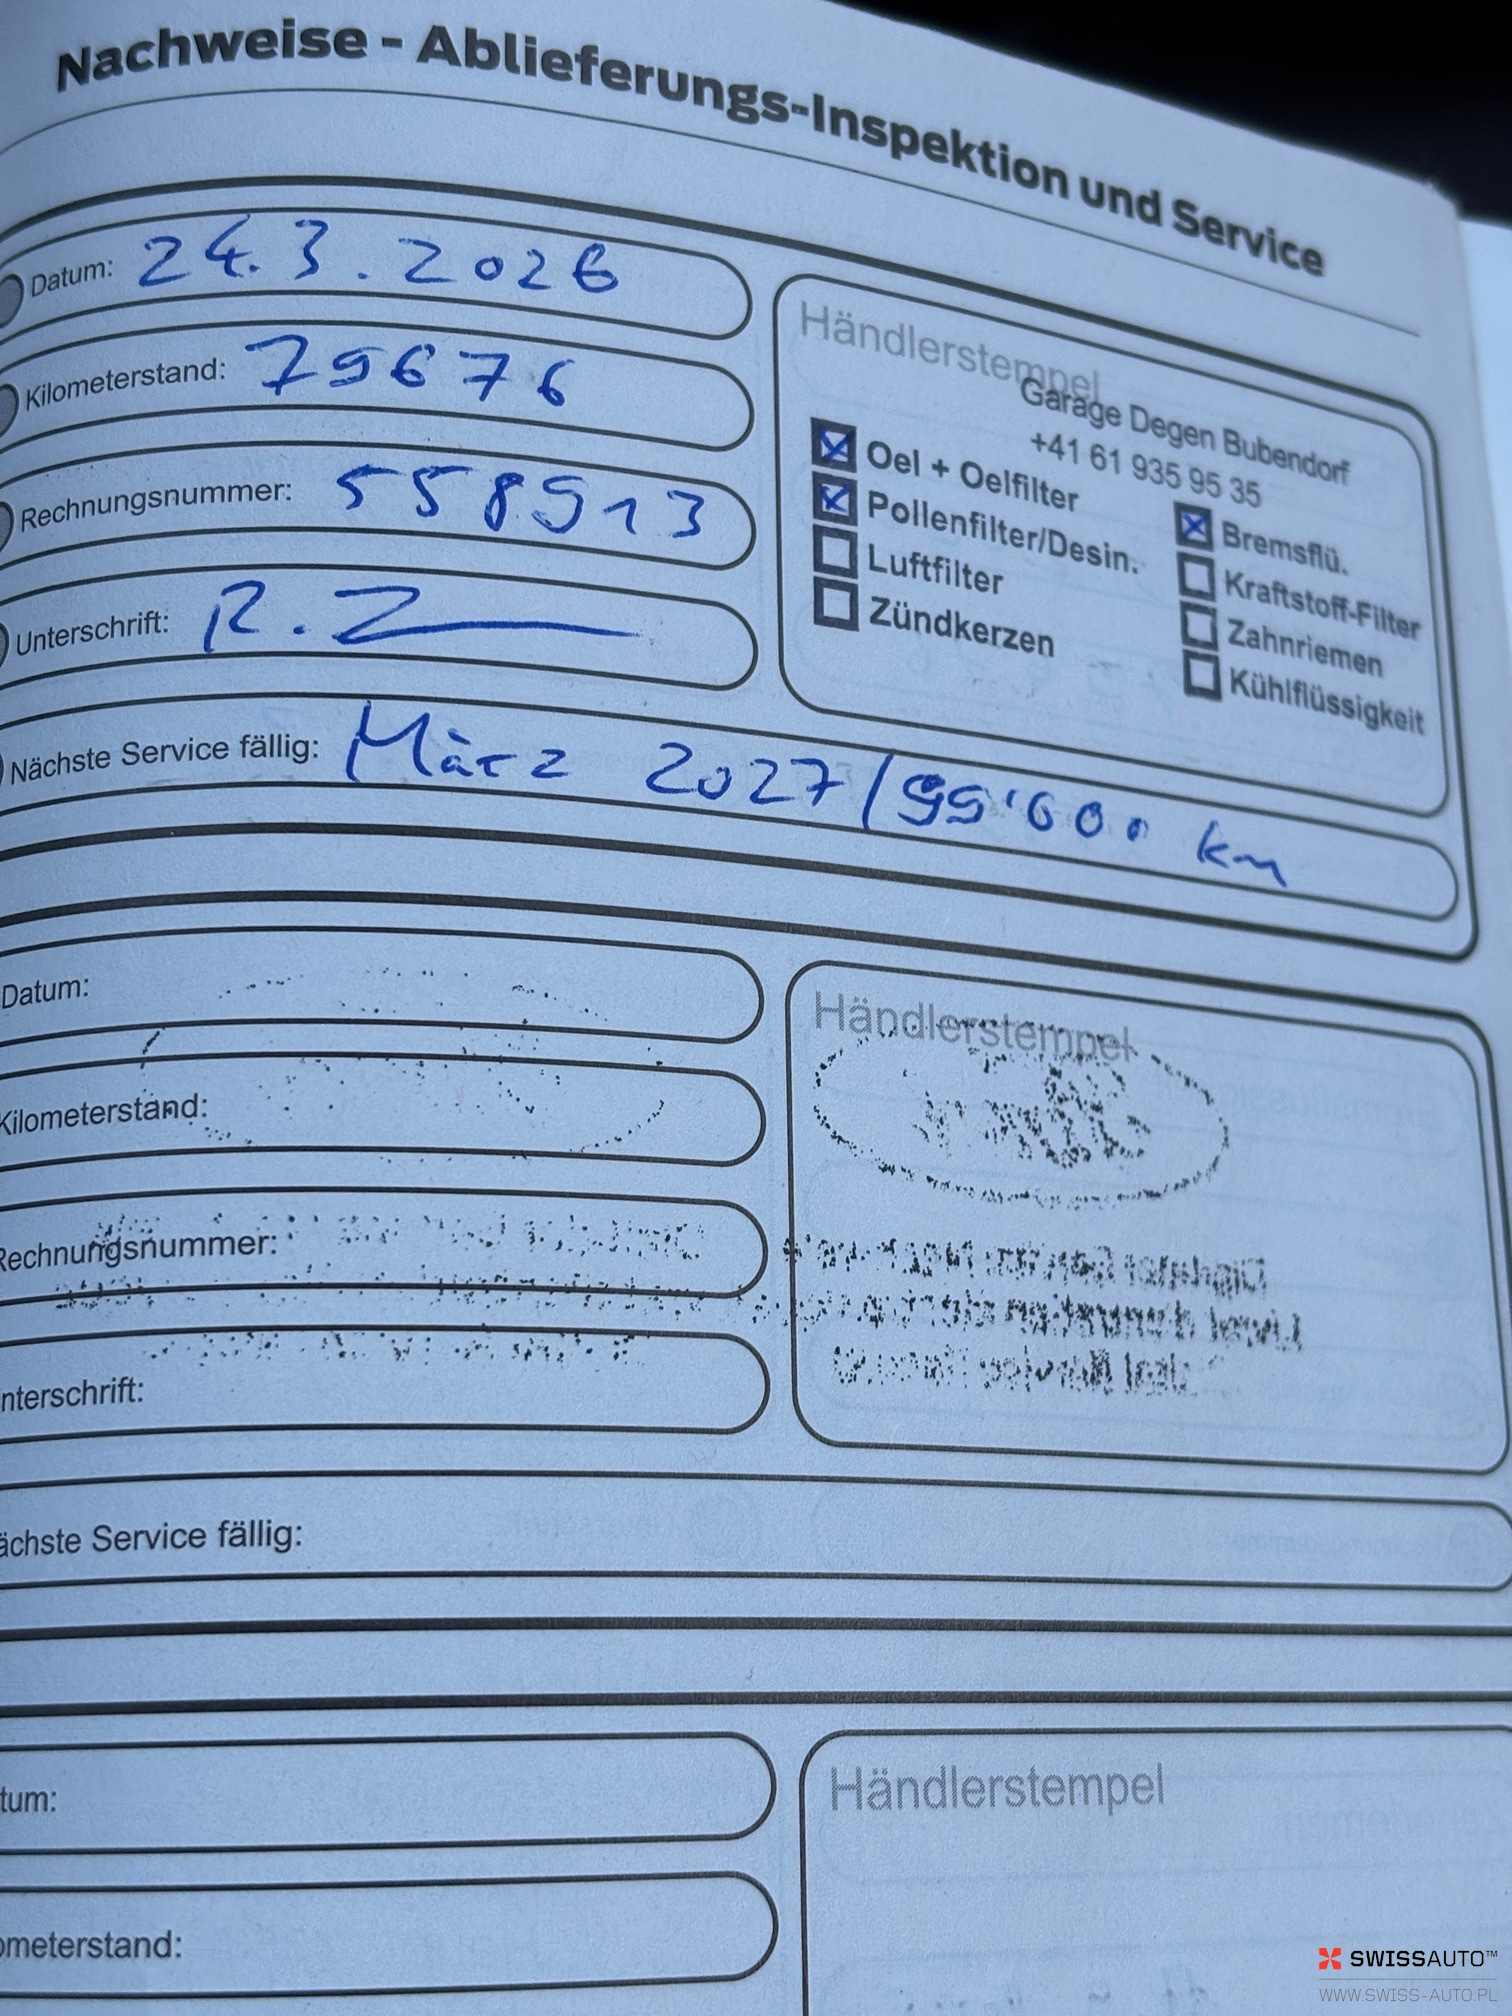 Nachweise - Ablieferungs-Inspektion und Service
Datum: 24.3.2026
Kilometerstand: 79676
Rechnungsnummer: 558913
Unterschrift: R.Z
Nächste Service fällig: März 2027/99'600 km
Händlerstempel
Garage Degen Bubendorf
+41 61 935 95 35
Oel + Oelfilter
Pollenfilter/Desin.
Luftfilter
Zündkerzen
Bremsflü.
Kraftstoff-Filter
Zahnriemen
Kühlflüssigkeit
Datum:
Kilometerstand:
Rechnungsnummer:
nterschrift:
ächste Service fällig:
Händlerstempel
tum:
ometerstand:
Händlerstempel
SWISSAUTO™
WWW.SWISS-AUTO.PL